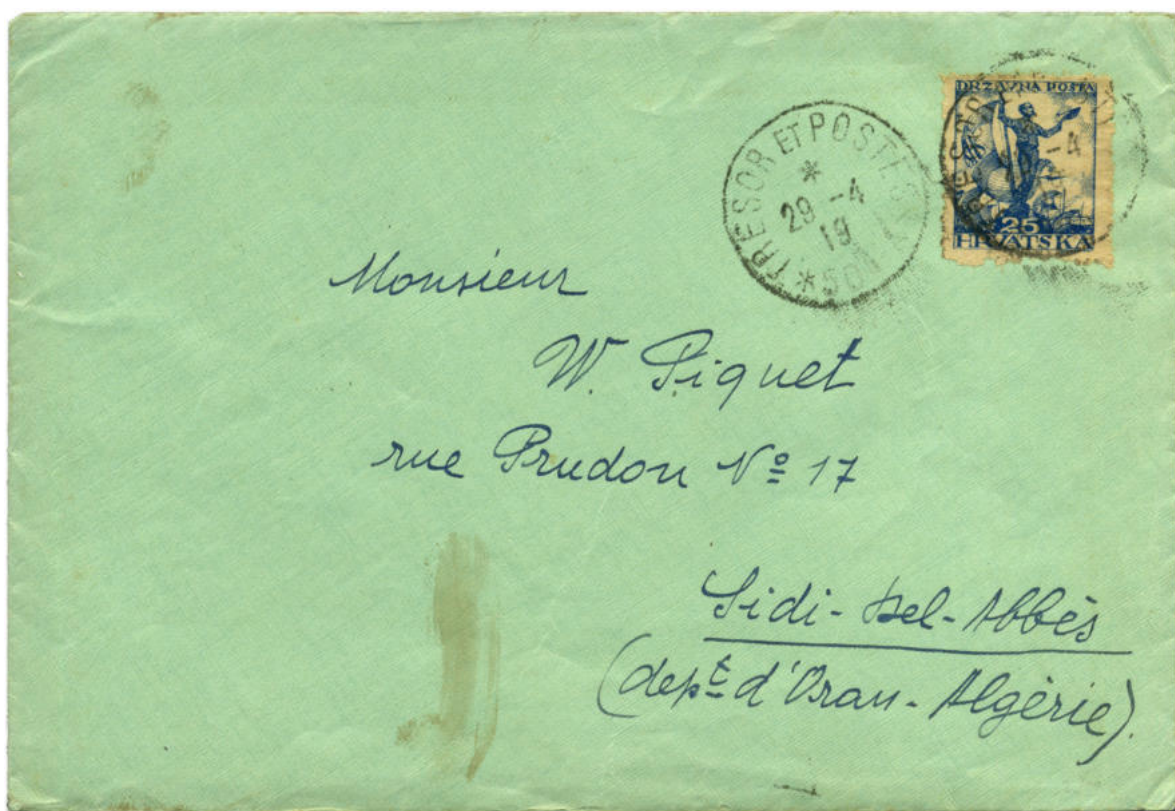 DRŽAVNA POSTA
25
HRVATSKA
* TRESOR ET POSTES *
29 -4
19
-4
Monsieur
W. Piquet
rue Prudon Nº 17
Sidi-Bel-Abbès
(dept d'Oran-Algérie).